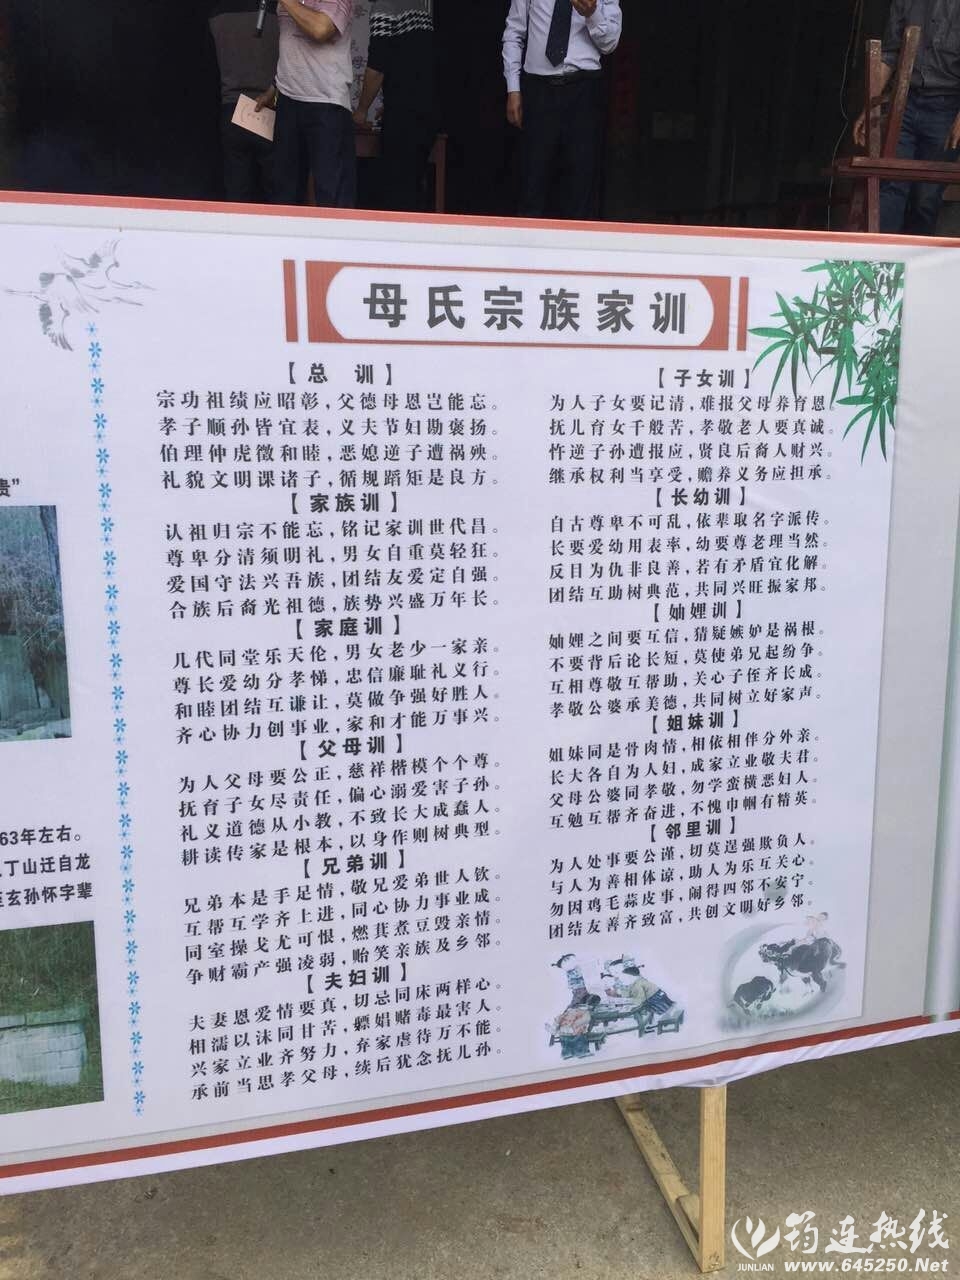 母氏宗族家训
【总 训】
宗功祖绩应昭彰，父德母恩岂能忘。
孝子顺孙皆宜表，义夫节妇勘褒扬。
伯理仲虎徵和睦，恶媳逆子遭祸殃。
礼貌文明课诸子，循规蹈矩是良方。
【家族训】
认祖归宗不能忘，铭记家训世代昌。
尊卑分清须明礼，男女自重莫轻狂。
爱国守法兴吾族，团结友爱定自强。
合族后裔光祖德，族势兴盛万年长。
【家庭训】
几代同堂乐天伦，男女老少一家亲。
尊长爱幼分孝悌，忠信廉耻礼义行。
和睦团结互谦让，莫做争强好胜人。
齐心协力创事业，家和才能万事兴。
【父母训】
为人父母要公正，慈祥楷模个个尊。
抚育子女尽责任，偏心溺爱害子孙。
礼义道德从小教，不致长大成蠢人。
耕读传家是根本，以身作则树典型。
【兄弟训】
兄弟本是手足情，敬兄爱弟世人钦。
互帮互学齐上进，同心协力事业成。
同室操戈尤可恨，燃萁煮豆毁亲情。
争财霸产强凌弱，贻笑亲族及乡邻。
【夫妇训】
夫妻恩爱情要真，切忌同床两样心。
相濡以沫同甘苦，嫖娼赌毒最害人。
兴家立业齐努力，弃家虐待万不能。
承前当思孝父母，续后犹念抚儿孙。
【子女训】
为人子女要记清，难报父母养育恩。
抚儿育女千般苦，孝敬老人要真诚。
忤逆子孙遭报应，贤良后裔人财兴。
继承权利当享受，赡养义务应担承。
【长幼训】
自古尊卑不可乱，依辈取名字派传。
长要爱幼用表率，幼要尊老理当然。
反目为仇非良善，若有矛盾宜化解。
团结互助树典范，共同兴旺振家邦。
【妯娌训】
妯娌之间要互信，猜疑嫉妒是祸根。
不要背后论长短，莫使弟兄起纷争。
互相尊敬互帮助，关心子侄齐长成。
孝敬公婆承美德，共同树立好家声。
【姐妹训】
姐妹同是骨肉情，相依相伴分外亲。
长大各自为人妇，成家立业敬夫君。
父母公婆同孝敬，勿学蛮横恶妇人。
互勉互帮齐奋进，不愧巾帼有精英。
【邻里训】
为人处事要公谨，切莫逞强欺负人。
与人为善相体谅，助人为乐互关心。
勿因鸡毛蒜皮事，闹得四邻不安宁。
团结友善齐致富，共创文明好乡邻。
贵”
63年左右。
丁山迁自龙
玄孙怀字辈
筠连热线
JUNLIAN www.645250.Net